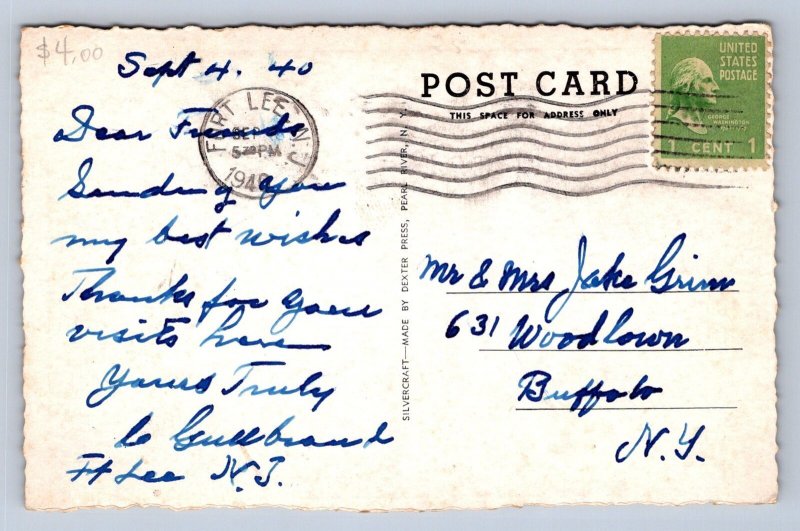 $4.00
Sept 4. 40
Dear Friends
Sending you
my best wishes
Thanks for your
visits here
Yours Truly
Gulbrand
Ft Lee N.J.
FORT LEE N.J.
SEP
5 PM
1940
POST CARD
THIS SPACE FOR ADDRESS ONLY
UNITED
STATES
POSTAGE
GEORGE
WASHINGTON
1 CENT 1
SILVERCRAFT—MADE BY DEXTER PRESS, PEARL RIVER, N. Y.
Mr & Mrs Jake Grim
631 Woodlawn
Buffalo
N.Y.